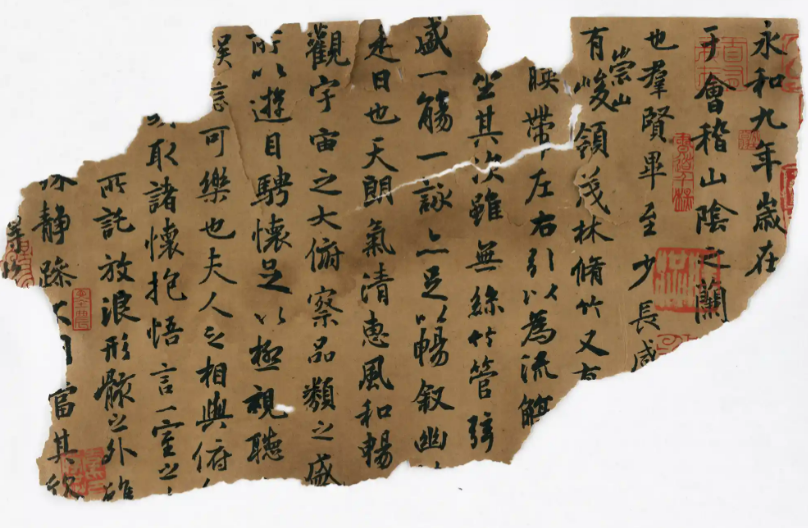 永和九年歲在
于會稽山陰之蘭
也羣賢畢至少長咸
有崇山峻領茂林脩竹又有
映帶左右引以為流觴
坐其次雖無絲竹管弦
盛一觴一詠亦足以暢叙幽
是日也天朗氣清惠風和暢
觀宇宙之大俯察品類之盛
所以遊目騁懷足以極視聽
娛信可樂也夫人之相與俯
取諸懷抱悟言一室之
所託放浪形骸之外雖
靜躁不同當其欣